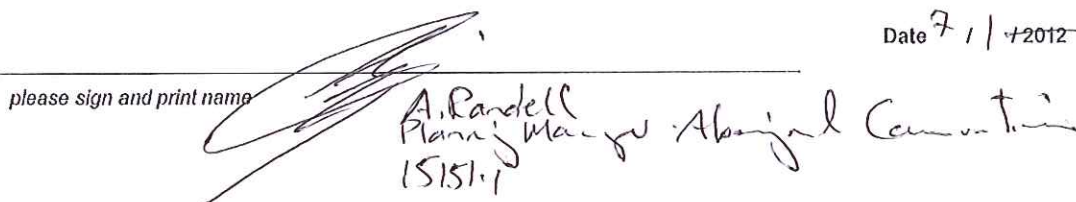 Date 7 / 1 /2012
please sign and print name
A. Randell
Planning Manager Aboriginal